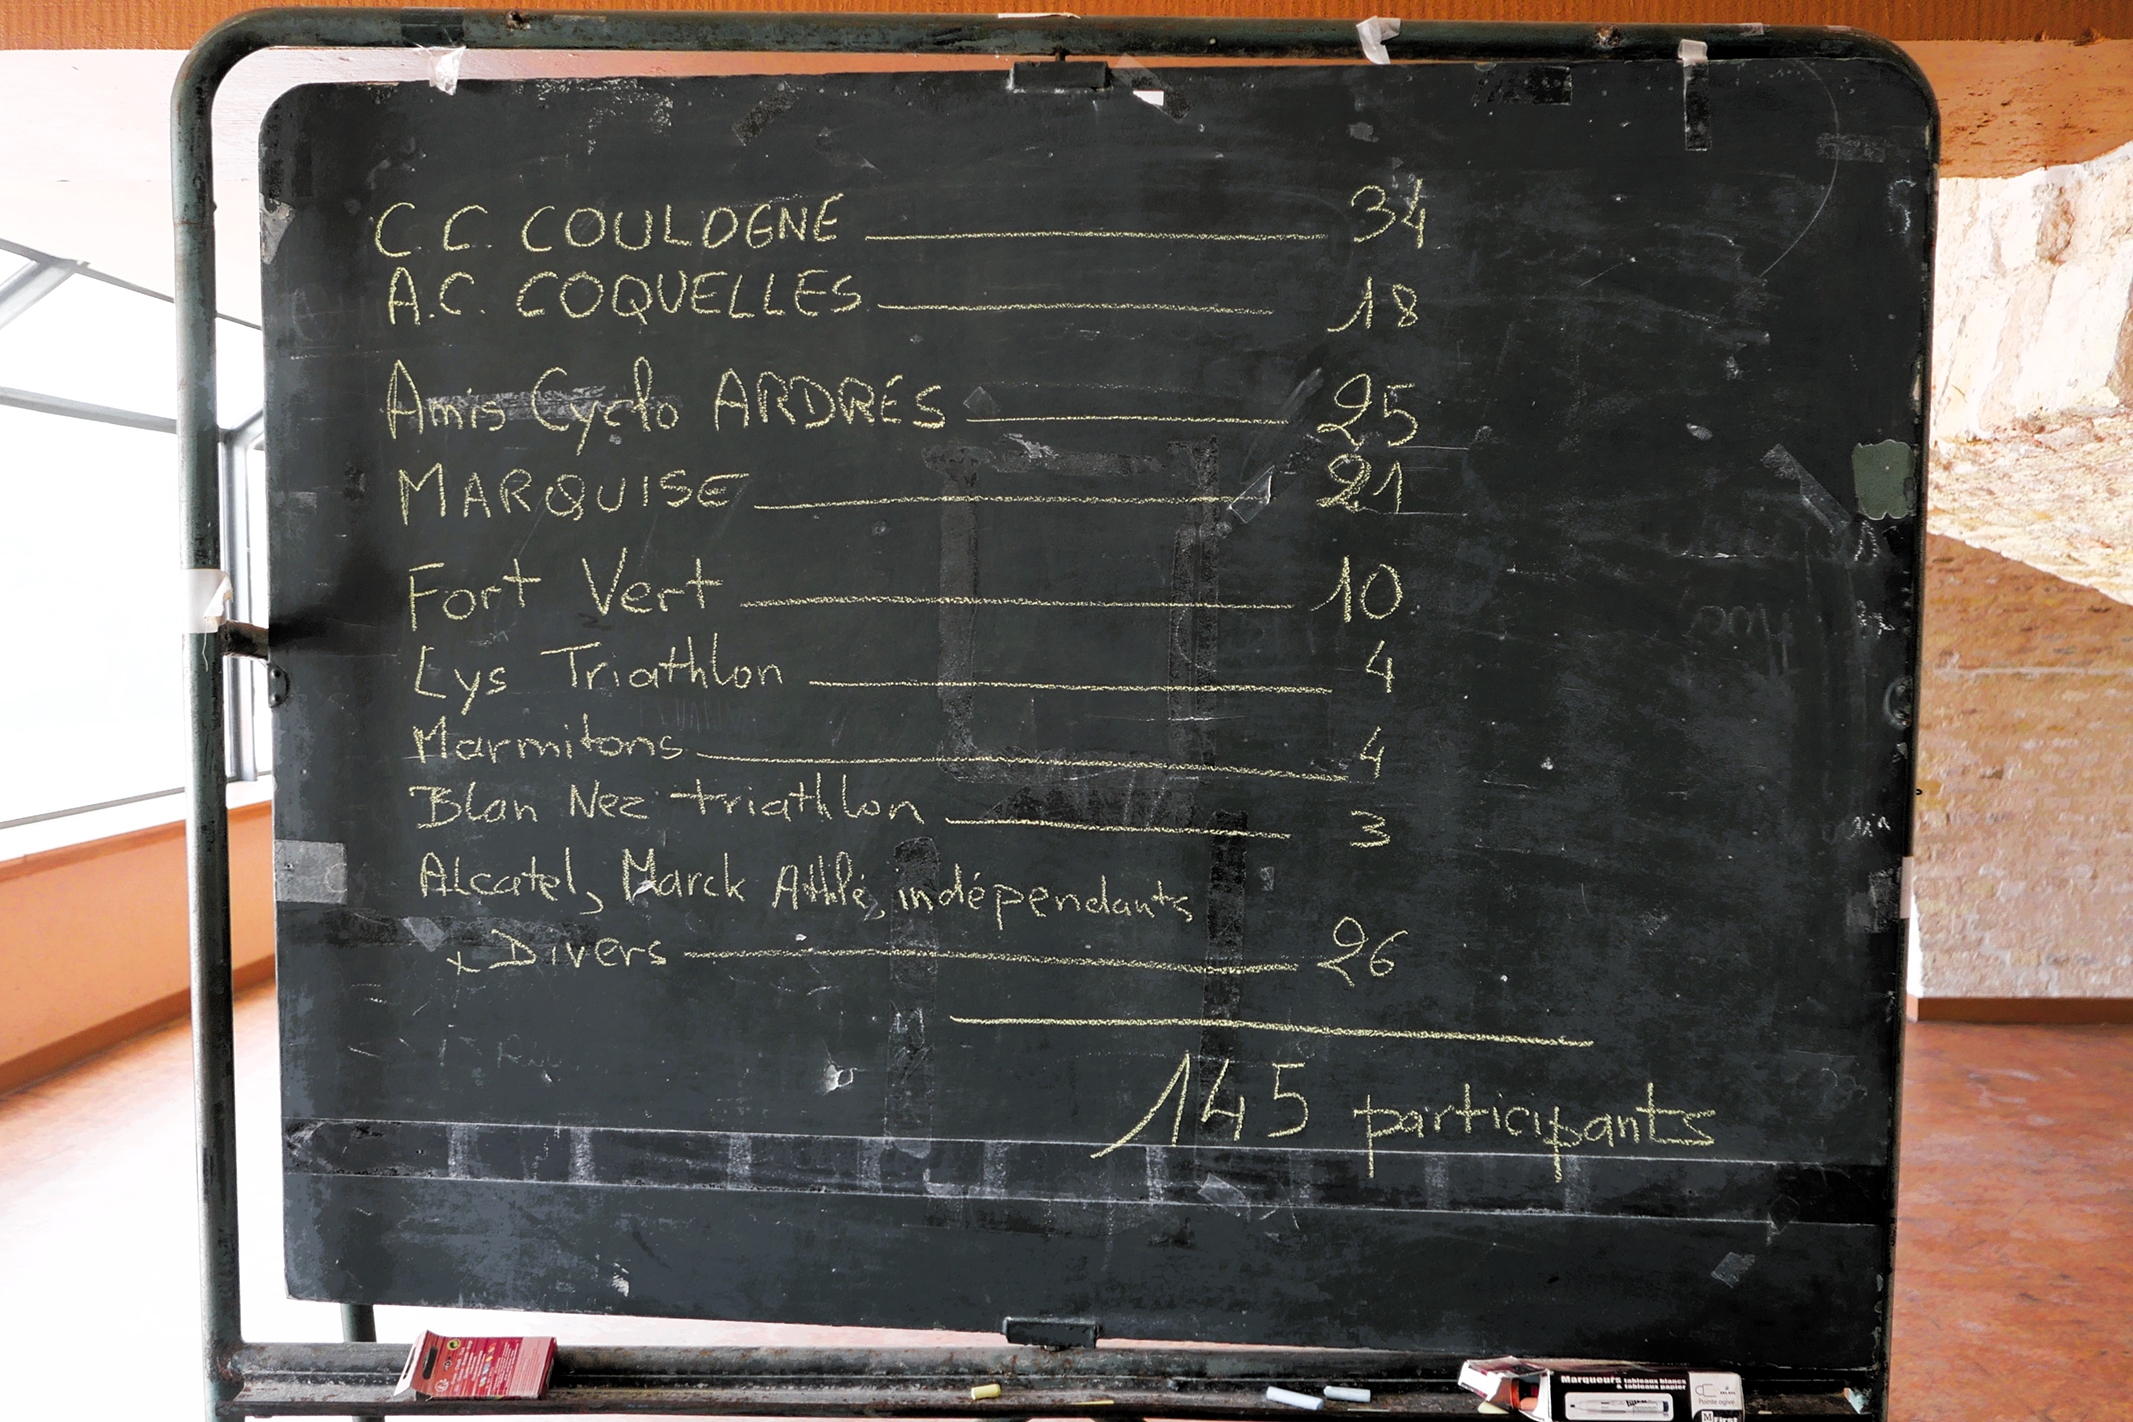 C.C. COULOGNE 34
A.C. COQUELLES 18
Amis Cyclo ARDRES 25
MARQUISE 21
Fort Vert 10
Lys Triathlon 4
Marmitons 4
Blan Nez triathlon 3
Alcatel, Marck Athlé, indépendants
+ Divers 26
145 participants
Marqueurs tableaux blancs
& tableaux papier
Pointe ogive